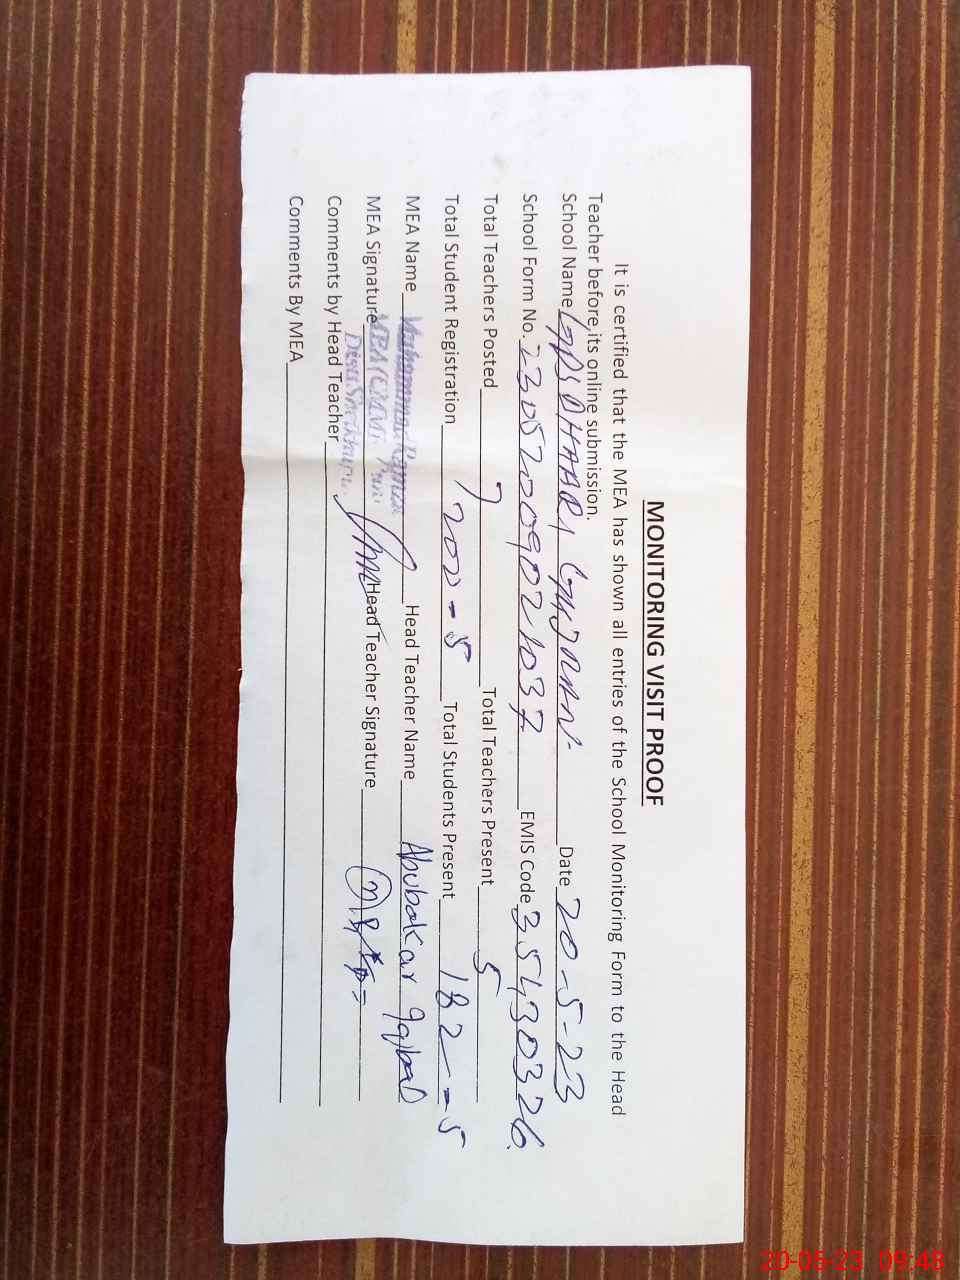 MONITORING VISIT PROOF
It is certified that the MEA has shown all entries of the School Monitoring Form to the Head
Teacher before its online submission.
School Name GPS DHAARI GUJRAN Date 20-5-23
School Form No. 23052009021037 EMIS Code 35430326
Total Teachers Posted 7 Total Teachers Present 5
Total Student Registration 200 - 5 Total Students Present 182 - 5
MEA Name Head Teacher Name Abubakar Iqbal
MEA Signature Head Teacher Signature
Comments by Head Teacher
Comments By MEA
20-05-23 09:48